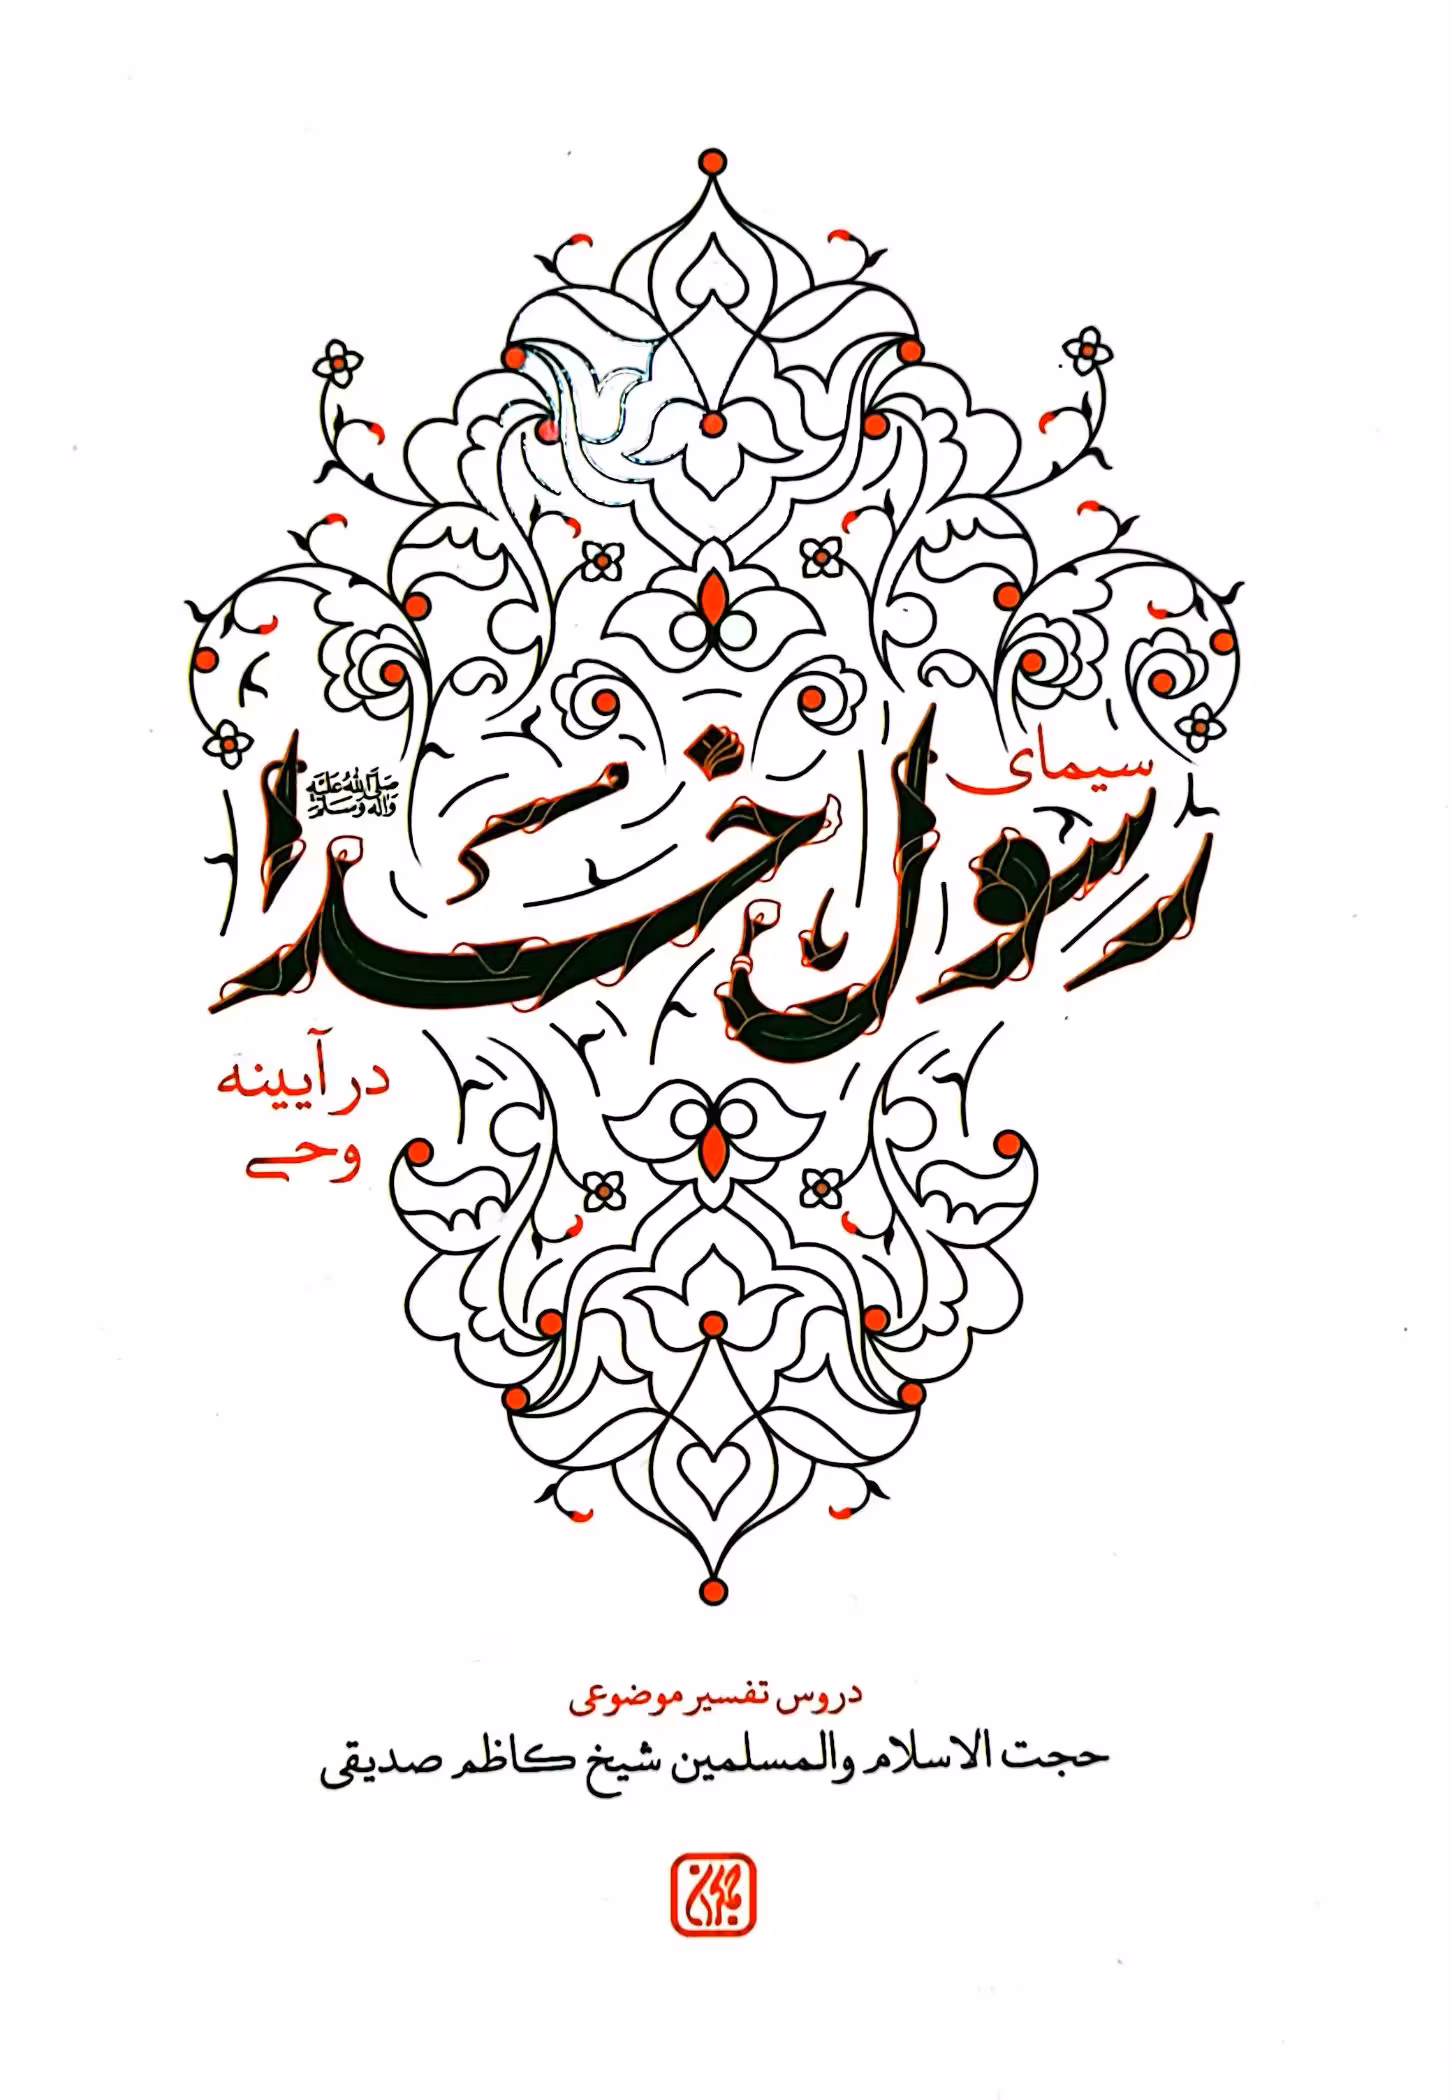 سیمای
رسول خدا
صَلَّى اللهُ عَلَيْهِ
وَآلِهِ وَسَلَّمَ
در آیینه
وحی
دروس تفسیر موضوعی
حجت الاسلام والمسلمین شیخ کاظم صدیقی